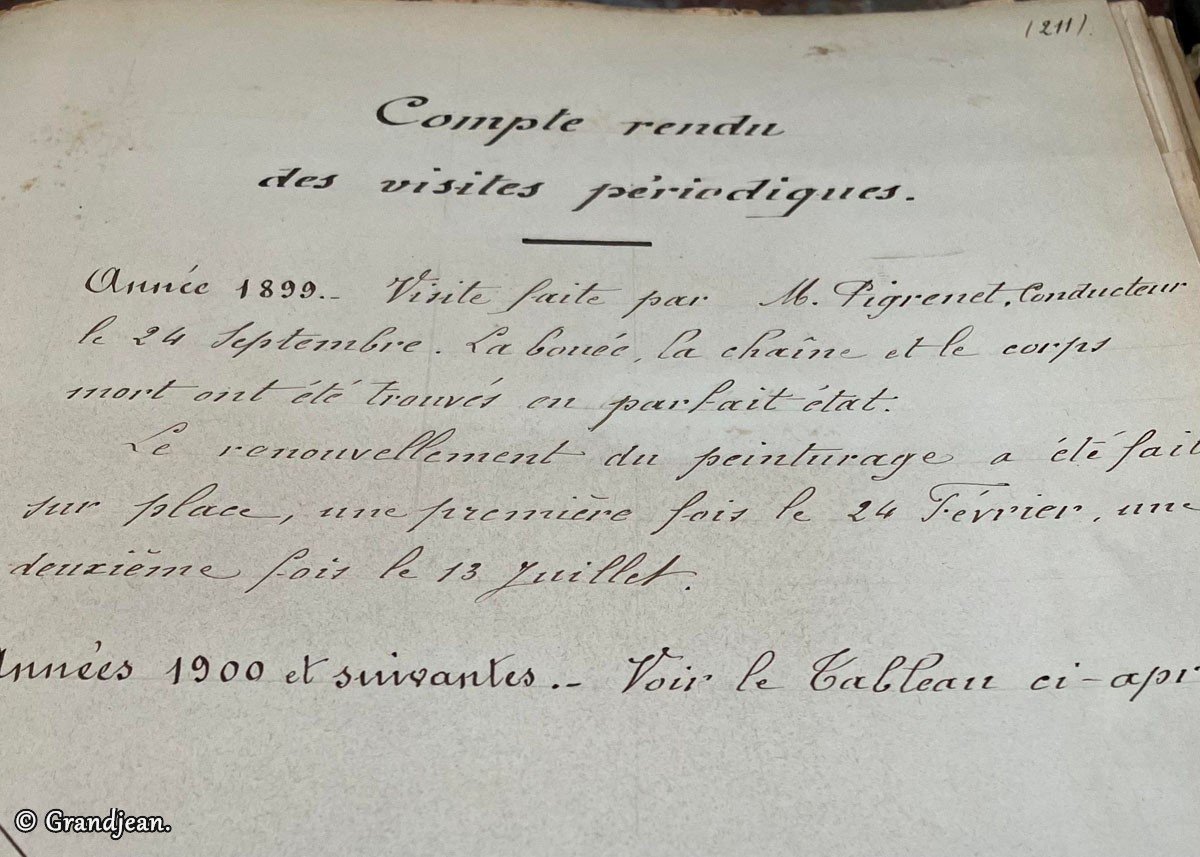 (211).
Compte rendu
des visites périodiques.
Année 1899.- Visite faite par M. Pigrenet, Conducteur
le 24 Septembre. La bouée, la chaîne et le corps
mort ont été trouvés en parfait état.
Le renouvellement du peinturage a été fait
sur place, une première fois le 24 Février, une
deuxième fois le 13 Juillet.
Années 1900 et suivantes.- Voir le Tableau ci-apr
© Grandjean.